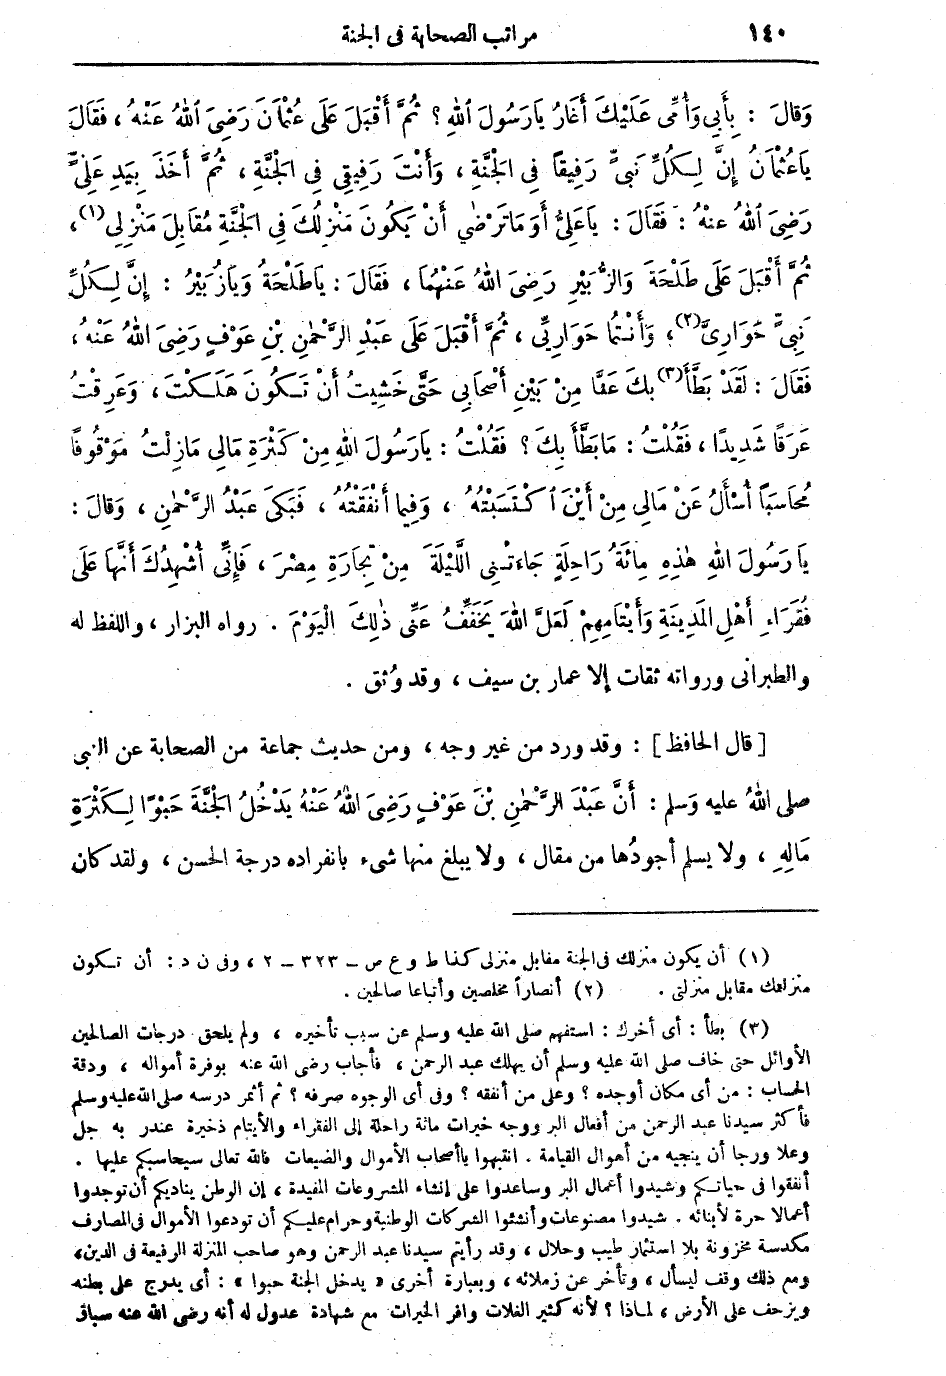 ١٤٠ مراتب الصحابة فى الجنة
وَقَالَ : بِأَبِى وَأُمِّى عَلَيْكَ أَغَارُ يَارَسُولَ اللهِ ؟ ثُمَّ أَقْبَلَ عَلَى عُثْمَانَ رَضِىَ اللهُ عَنْهُ ، فَقَالَ
يَاعُثْمَانُ إِنَّ لِكُلِّ نَبِىٍّ رَفِيقاً فِى الْجَنَّةِ ، وَأَنْتَ رَفِيقِى فِى الْجَنَّةِ ، ثُمَّ أَخَذَ بِيَدِ عَلِىٍّ
رَضِىَ اللهُ عنْهُ : فَقَالَ : يَاعَلِىُّ أَوَمَاتَرْضٰى أَنْ يَكُونَ مَنْزِلُكَ فِى الْجَنَّةِ مُقَابِلَ مَنْزِلِى (١) ،
ثُمَّ أَقْبَلَ عَلَى طَلْحَةَ وَالزُّبَيْرِ رَضِىَ اللهُ عَنْهُمَا ، فَقَالَ : يَاطَلْحَةُ وَيَازُبَيْرُ : إِنَّ لِكُلِّ
نَبِىٍّ حَوَارِىَّ (٢) ، وَأَنْتُمَا حَوَارِيِّى ، ثُمَّ أَقْبَلَ عَلَى عَبْدِ الرَّحْمٰنِ بْنِ عَوْفٍ رَضِىَ اللهُ عَنْهُ ،
فَقَالَ : لَقَدْ بَطَّأَ (٣) بِكَ عَنَّا مِنْ بَيْنِ أَصْحَابِى حَتَّى خَشِيتُ أَنْ تَكُونَ هَلَكْتَ ، وَعَرِقْتُ
عَرَقًا شَدِيدًا ، فَقُلْتُ : مَابَطَّأَ بِكَ ؟ فَقُلْتُ : يَارَسُولَ اللهِ مِنْ كَثْرَةِ مَالِى مَازِلْتُ مَوْقُوفًا
مُحَاسَبًا أُسْأَلُ عَنْ مَالِى مِنْ أَيْنَ اكْتَسَبْتُهُ ، وَفِيمَا أَنْفَقْتُهُ ، فَبَكَى عَبْدُ الرَّحْمٰنِ ، وَقَالَ :
يَارَسُولَ اللهِ هٰذِهِ مِائَةُ رَاحِلَةٍ جَاءَتْنِى اللَّيْلَةَ مِنْ تِجَارَةِ مِصْرَ ، فَإِنِّى أُشْهِدُكَ أَنَّهَا عَلَى
فُقَرَاءِ أَهْلِ الْمَدِينَةِ وَأَيْتَامِهِمْ لَعَلَّ اللهَ يُخَفِّفُ عَنِّى ذٰلِكَ الْيَوْمَ . رواه البزار ، واللفظ له
والطبرانى ورواته ثقات إلا عمار بن سيف ، وقد وُثق .
[ قال الحافظ ] : وقد ورد من غير وجه ، ومن حديث جماعة من الصحابة عن النبى
صلى اللهُ عليه وَسلم : أَنَّ عَبْدَ الرَّحْمٰنِ بْنَ عَوْفٍ رَضِىَ اللهُ عَنْهُ يَدْخُلُ الْجَنَّةَ حَبْوًا لِكَثْرَةِ
مَالِهِ ، ولا يسلم أجودُها من مقال ، ولا يبلغ منها شىء بانفراده درجة الحسن ، ولقد كان
(١) أن يكون منزلك فى الجنة مقابل منزلى كذا ط و ع ص ــ ٣٢٣ ــ ٢ ، وفى ن د : أن تكون
منزلتك مقابل منزلتى . (٢) أنصاراً مخلصين وأتباعا صالحين .
(٣) بطأ : أى أخرك : استفهم صلى الله عليه وسلم عن سبب تأخيره ، ولم يلحق درجات الصالحين
الأوائل حتى خاف صلى الله عليه وسلم أن يهلك عبد الرحمن ، فأجاب رضى الله عنه بوفرة أمواله ، ودقة
الحساب : من أى مكان أوجده ؟ وعلى من أنفقه ؟ وفى أى الوجوه صرفه ؟ ثم أثمر درسه صلى الله عليه وسلم
فأكثر سيدنا عبد الرحمن من أفعال البر ووجه خيرات مائة راحلة إلى الفقراء والأيتام ذخيرة عند ربه جل
وعلا ورجا أن ينجيه من أهوال القيامة . انتبهوا ياأصحاب الأموال والضيعات فالله تعالى سيحاسبكم عليها .
أنفقوا فى حياتكم وشيدوا أعمال البر وساعدوا على إنشاء المشروعات المفيدة ، إن الوطن يناديكم أن توجدوا
أعمالا حرة لأبنائه . شيدوا مصنوعات وأنشئوا الشركات الوطنية وحرام عليكم أن تودعوا الأموال فى المصارف
مكدسة مخزونة بلا استثمار طيب وحلال ، وقد رأيتم سيدنا عبد الرحمن وهو صاحب المنزلة الرفيعة فى الدين ،
ومع ذلك وقف ليسأل ، وتأخر عن زملائه ، وبعبارة أخرى « يدخل الجنة حبوا » : أى يدرج على بطنه
ويزحف على الأرض ، لماذا ؟ لأنه كثير الغلات وافر الخيرات مع شهادة عدول له أنه رضى الله عنه سباق